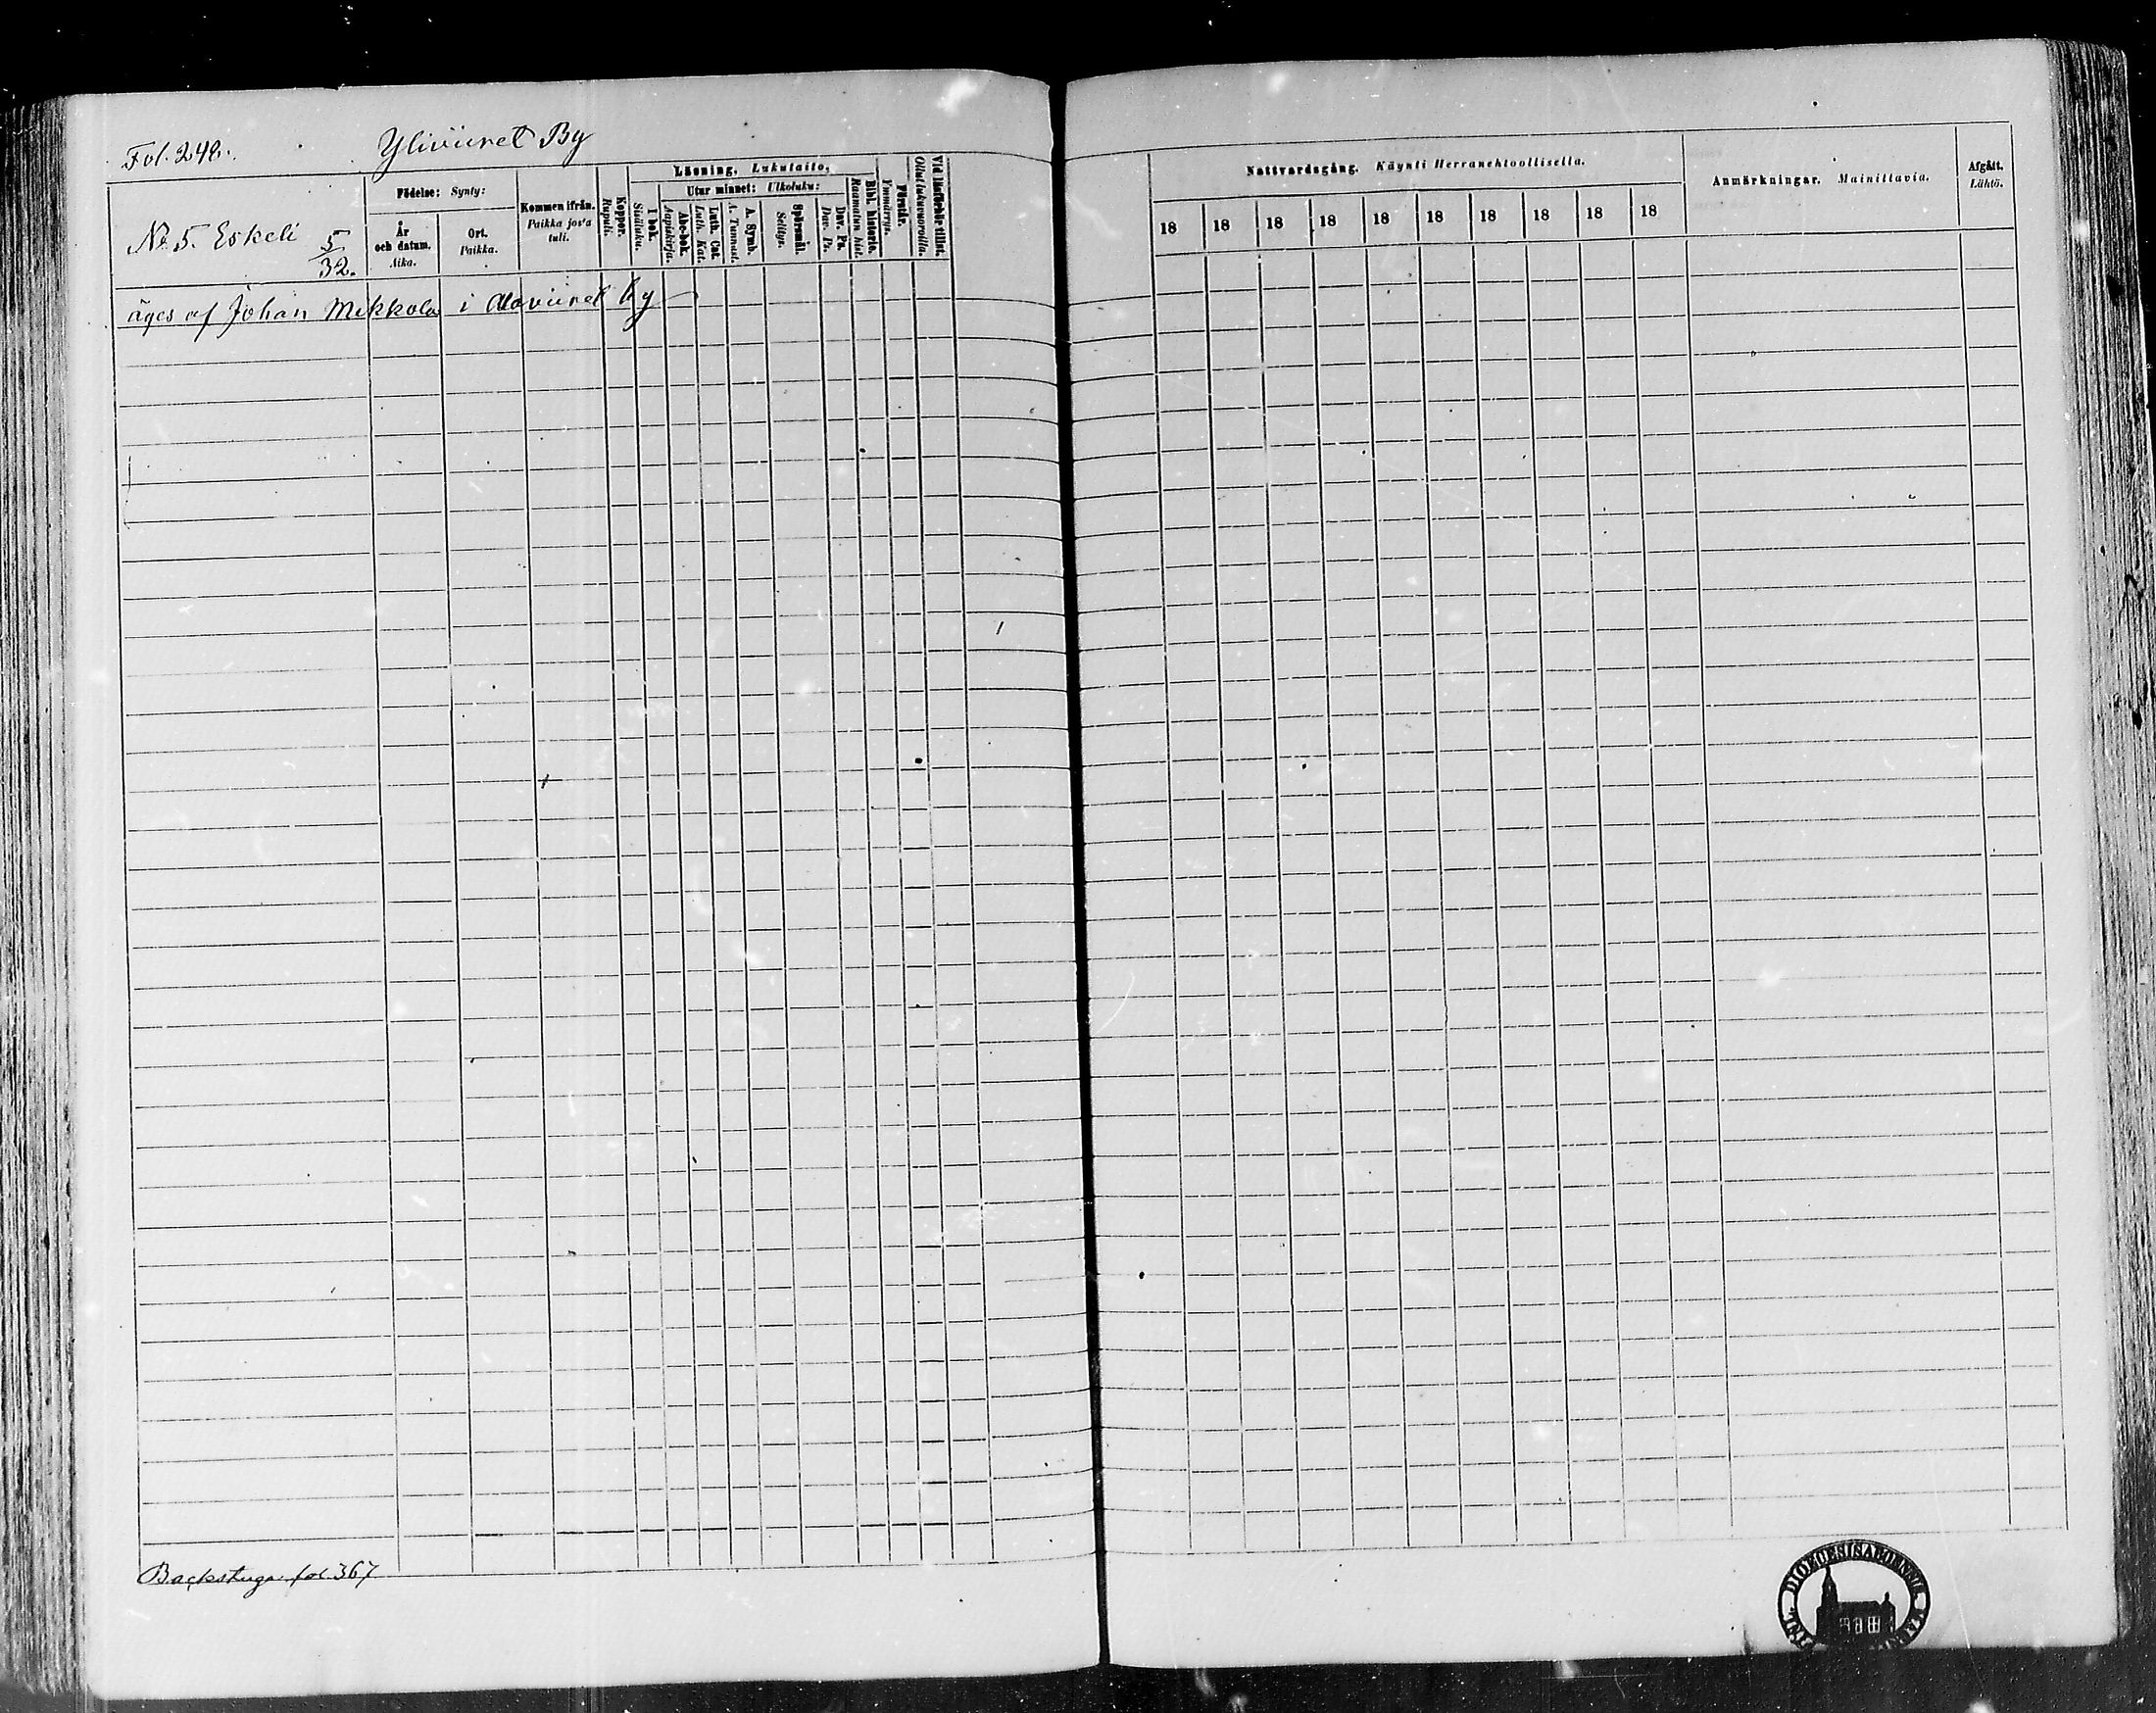 Fol. 248. Yliviiret By
N:o 5. Eskeli 5/32.
Födelse: Synty:
År och datum. Aika.
Ort. Paikka.
Kommen ifrån. Paikka jos'a tuli.
Koppor. Rupuli.
Läsning, Lukutaito,
I bok. Sisäluku.
Utur minnet: Ulkoluku:
Abc-bok. Aapiskirja.
Luth. Cat. Luth. Kat.
A. Symb. A. Tunnust.
Spörsmål. Selitys.
Dav. Ps. Dav. Ps.
Bibl. historie. Raamatun hist.
Förstår. Ymmärrys.
Vid läsförhör tillst. Ollut lukuvuoroilla.
äges af Johan Mikkola i Alaviiret by
Backstuga fol. 367
Nattvardsgång. Käynti Herranehtoollisella.
18 18 18 18 18 18 18 18 18 18
Anmärkningar. Mainittavia.
Afgått. Lähtö.